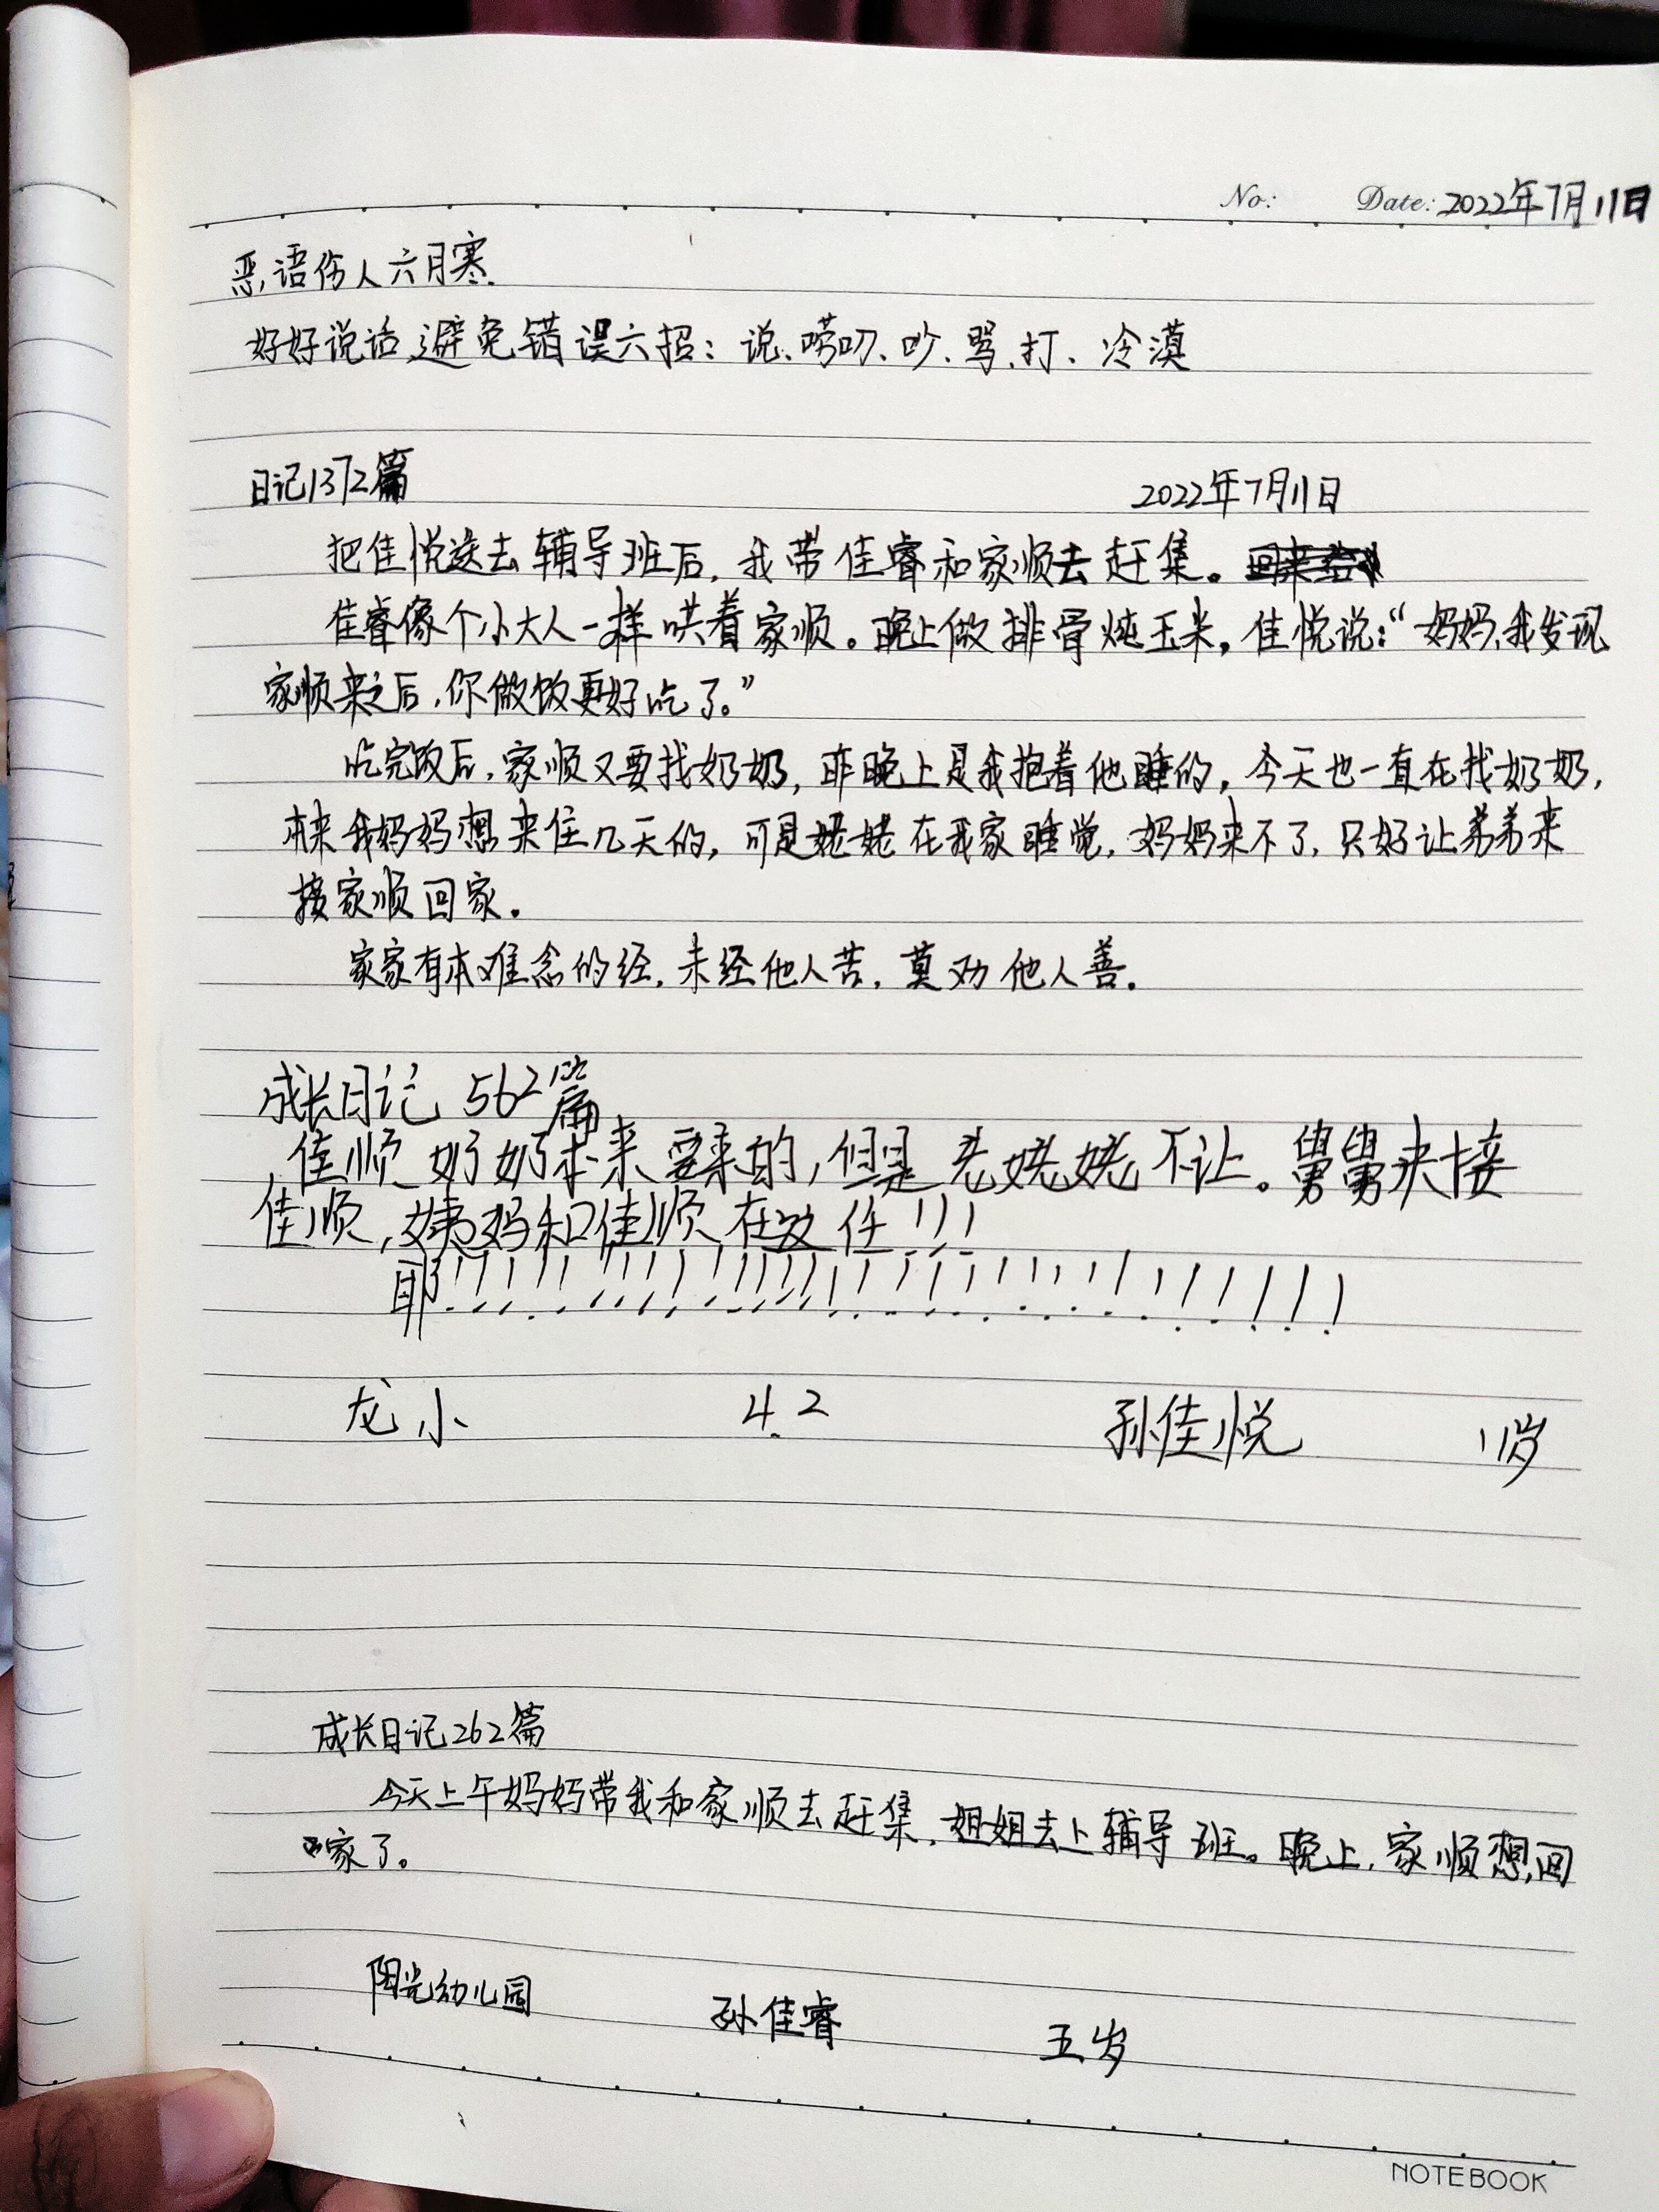 No: Date: 2022年7月11日
恶语伤人六月寒.
好好说话,避免错误六招：说、唠叨、吵、骂、打、冷漠
日记1372篇 2022年7月11日
把佳悦送去辅导班后，我带佳睿和家顺去赶集。
佳睿像个小大人一样哄着家顺。晚上做排骨炖玉米，佳悦说：“妈妈，我发现
家顺来之后，你做饭更好吃了。”
吃完饭后，家顺又要找奶奶，昨晚上是我抱着他睡的，今天也一直在找奶奶，
本来我妈妈想来住几天的，可是姥姥在我家睡觉，妈妈来不了，只好让弟弟来
接家顺回家。
家家有本难念的经，未经他人苦，莫劝他人善。
成长日记 562篇
佳顺奶奶本来要来的，但是老姥姥不让。舅舅来接
佳顺，姨妈和佳顺在这住!!!
耶!!!!!!!!!!!!!!!!!!!!!!!!!!!!!!!!!!
龙小 4.2 孙佳悦 11岁
成长日记262篇
今天上午妈妈带我和家顺去赶集，姐姐去上辅导班。晚上，家顺想回
家了。
阳光幼儿园 孙佳睿 五岁
NOTEBOOK